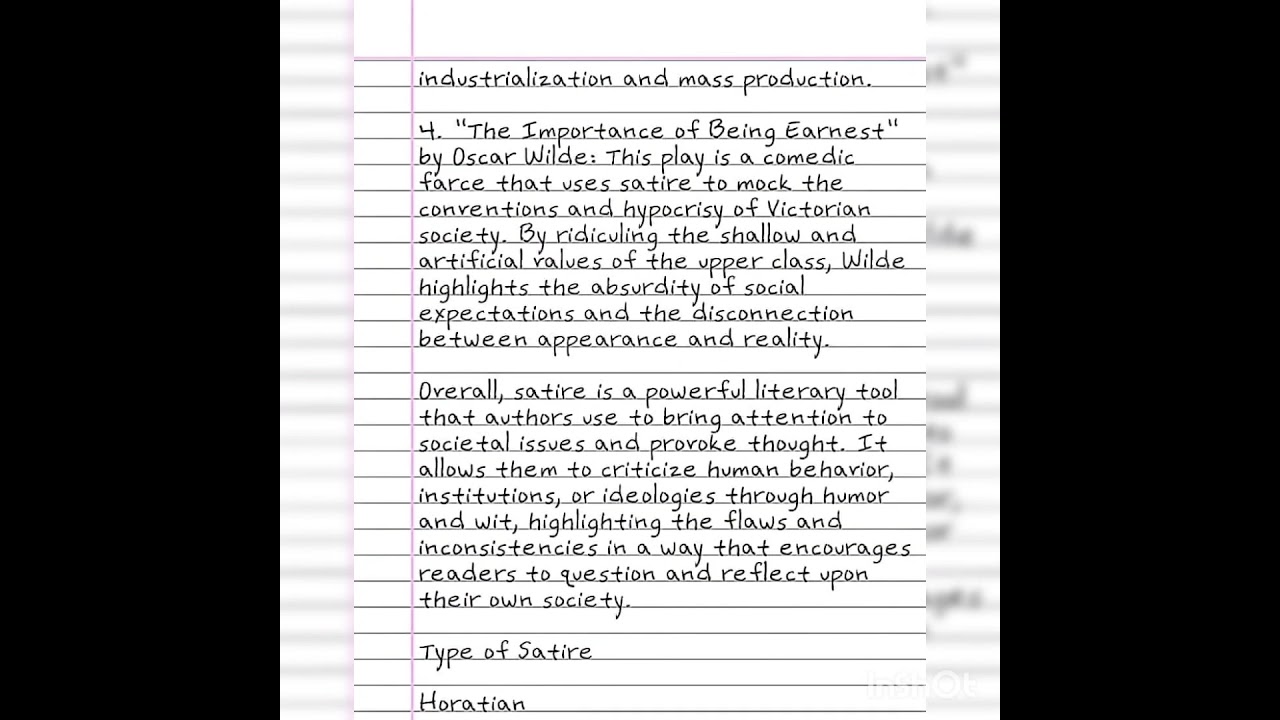 industrialization and mass production.
4. "The Importance of Being Earnest"
by Oscar Wilde: This play is a comedic
farce that uses satire to mock the
conventions and hypocrisy of Victorian
society. By ridiculing the shallow and
artificial values of the upper class, Wilde
highlights the absurdity of social
expectations and the disconnection
between appearance and reality.
Overall, satire is a powerful literary tool
that authors use to bring attention to
societal issues and provoke thought. It
allows them to criticize human behavior,
institutions, or ideologies through humor
and wit, highlighting the flaws and
inconsistencies in a way that encourages
readers to question and reflect upon
their own society.
Type of Satire
Horatian
InShOt